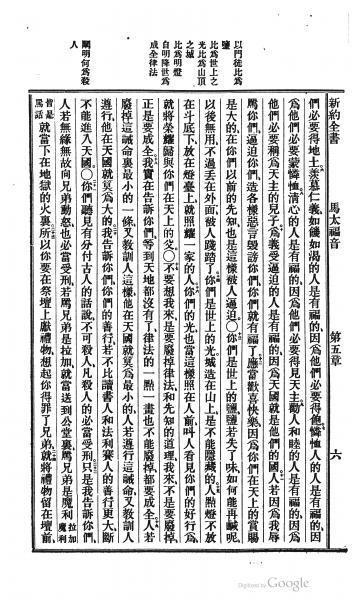 新約全書 馬太福音 第五章 六
以門徒比爲
鹽
比爲世上之
光比爲山頂
之城
比爲明燈
自明降世爲
成全律法
闡明何爲殺
人
們必要得地土羨慕仁義如饑如渴的人是有福的因爲他們必要得飽憐恤人的人是有福的因
爲他們必要蒙憐恤清心的人是有福的因爲他們必要得見天主勸人和睦的人是有福的因爲
他們必要稱爲天主的兒子爲義受逼迫的人是有福的因爲天國就是他們的國人若因爲我辱
罵你們逼迫你們造各樣惡言毀謗你們你們就有福了應當歡喜快樂因爲你們在天上的賞賜
是大的在你們以前的先知也是這樣被人逼迫〇你們是世上的鹽鹽若失了味如何能再鹹呢
以後無用不過丟在外面被人踐踏了你們是世上的光城造在山上是不能隱藏的人點燈不放
在斗底下放在燈臺上就照耀一家的人你們的光也當這樣照在人前叫人看見你們的好行爲
就將榮耀歸與你們在天上的父〇不要想我來是要廢掉律法和先知的道理我來不是要廢掉
正是要成全我實在告訴你們等到天地都沒有了律法的一點一畫也不能廢掉都要成全人若
廢掉這誡命裏最小的一條又敎訓人這樣他在天國就莫爲最小的人若遵行這誡命又敎訓人
遵行他在天國就莫爲大的我告訴你們你們的善行若不比讀書人和法利賽人的善行更大斷
不能進入天國〇你們聽見有分付古人的話說不可殺人凡殺人的必當受刑只是我告訴你們
人若無緣無故向兄弟動怒也必當受刑若罵兄弟是拉加就當送到公堂裏罵兄弟是魔利拉加魔利
皆是罵話就當下在地獄的火裏所以你要在祭壇上獻禮物想起你得罪了兄弟就將禮物留在壇前
Digitized by Google